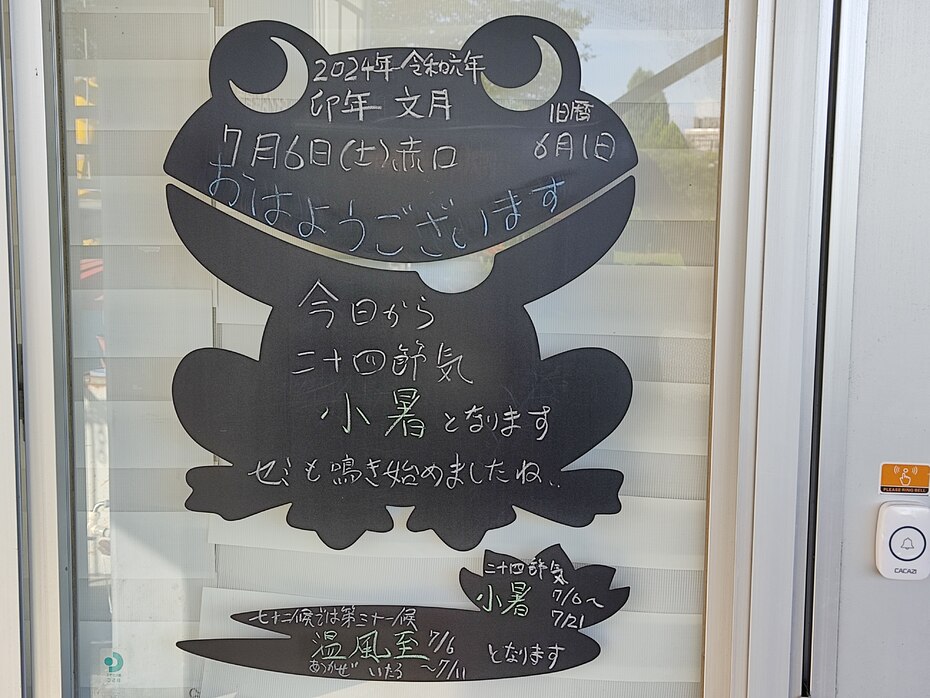 2024年 令和六年
卯年 文月
旧暦
7月6日(土)赤口
6月1日
おはようございます
今日から
二十四節気
小暑となります
せみも鳴き始めましたね..
二十四節気
小暑 7/6~
7/21
七十二候では第三十一候
温風至 7/6
あつかぜ いたる ~7/11
となります
PLEASE RING BELL
CACAZI